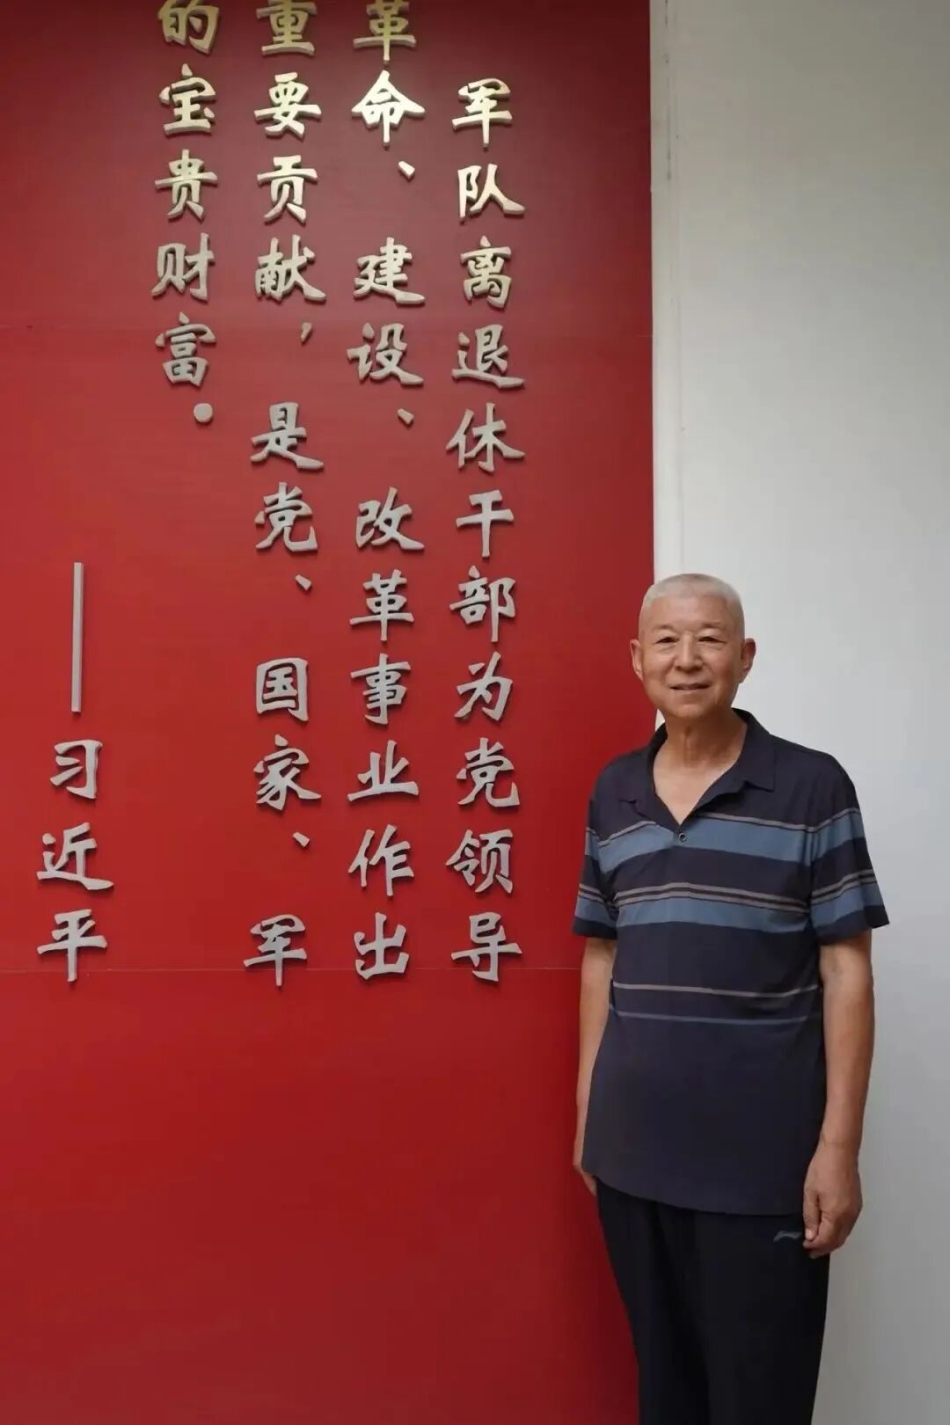 军队离退休干部为党领导
革命、建设、改革事业作出
重要贡献，是党、国家、军
的宝贵财富。
——习近平